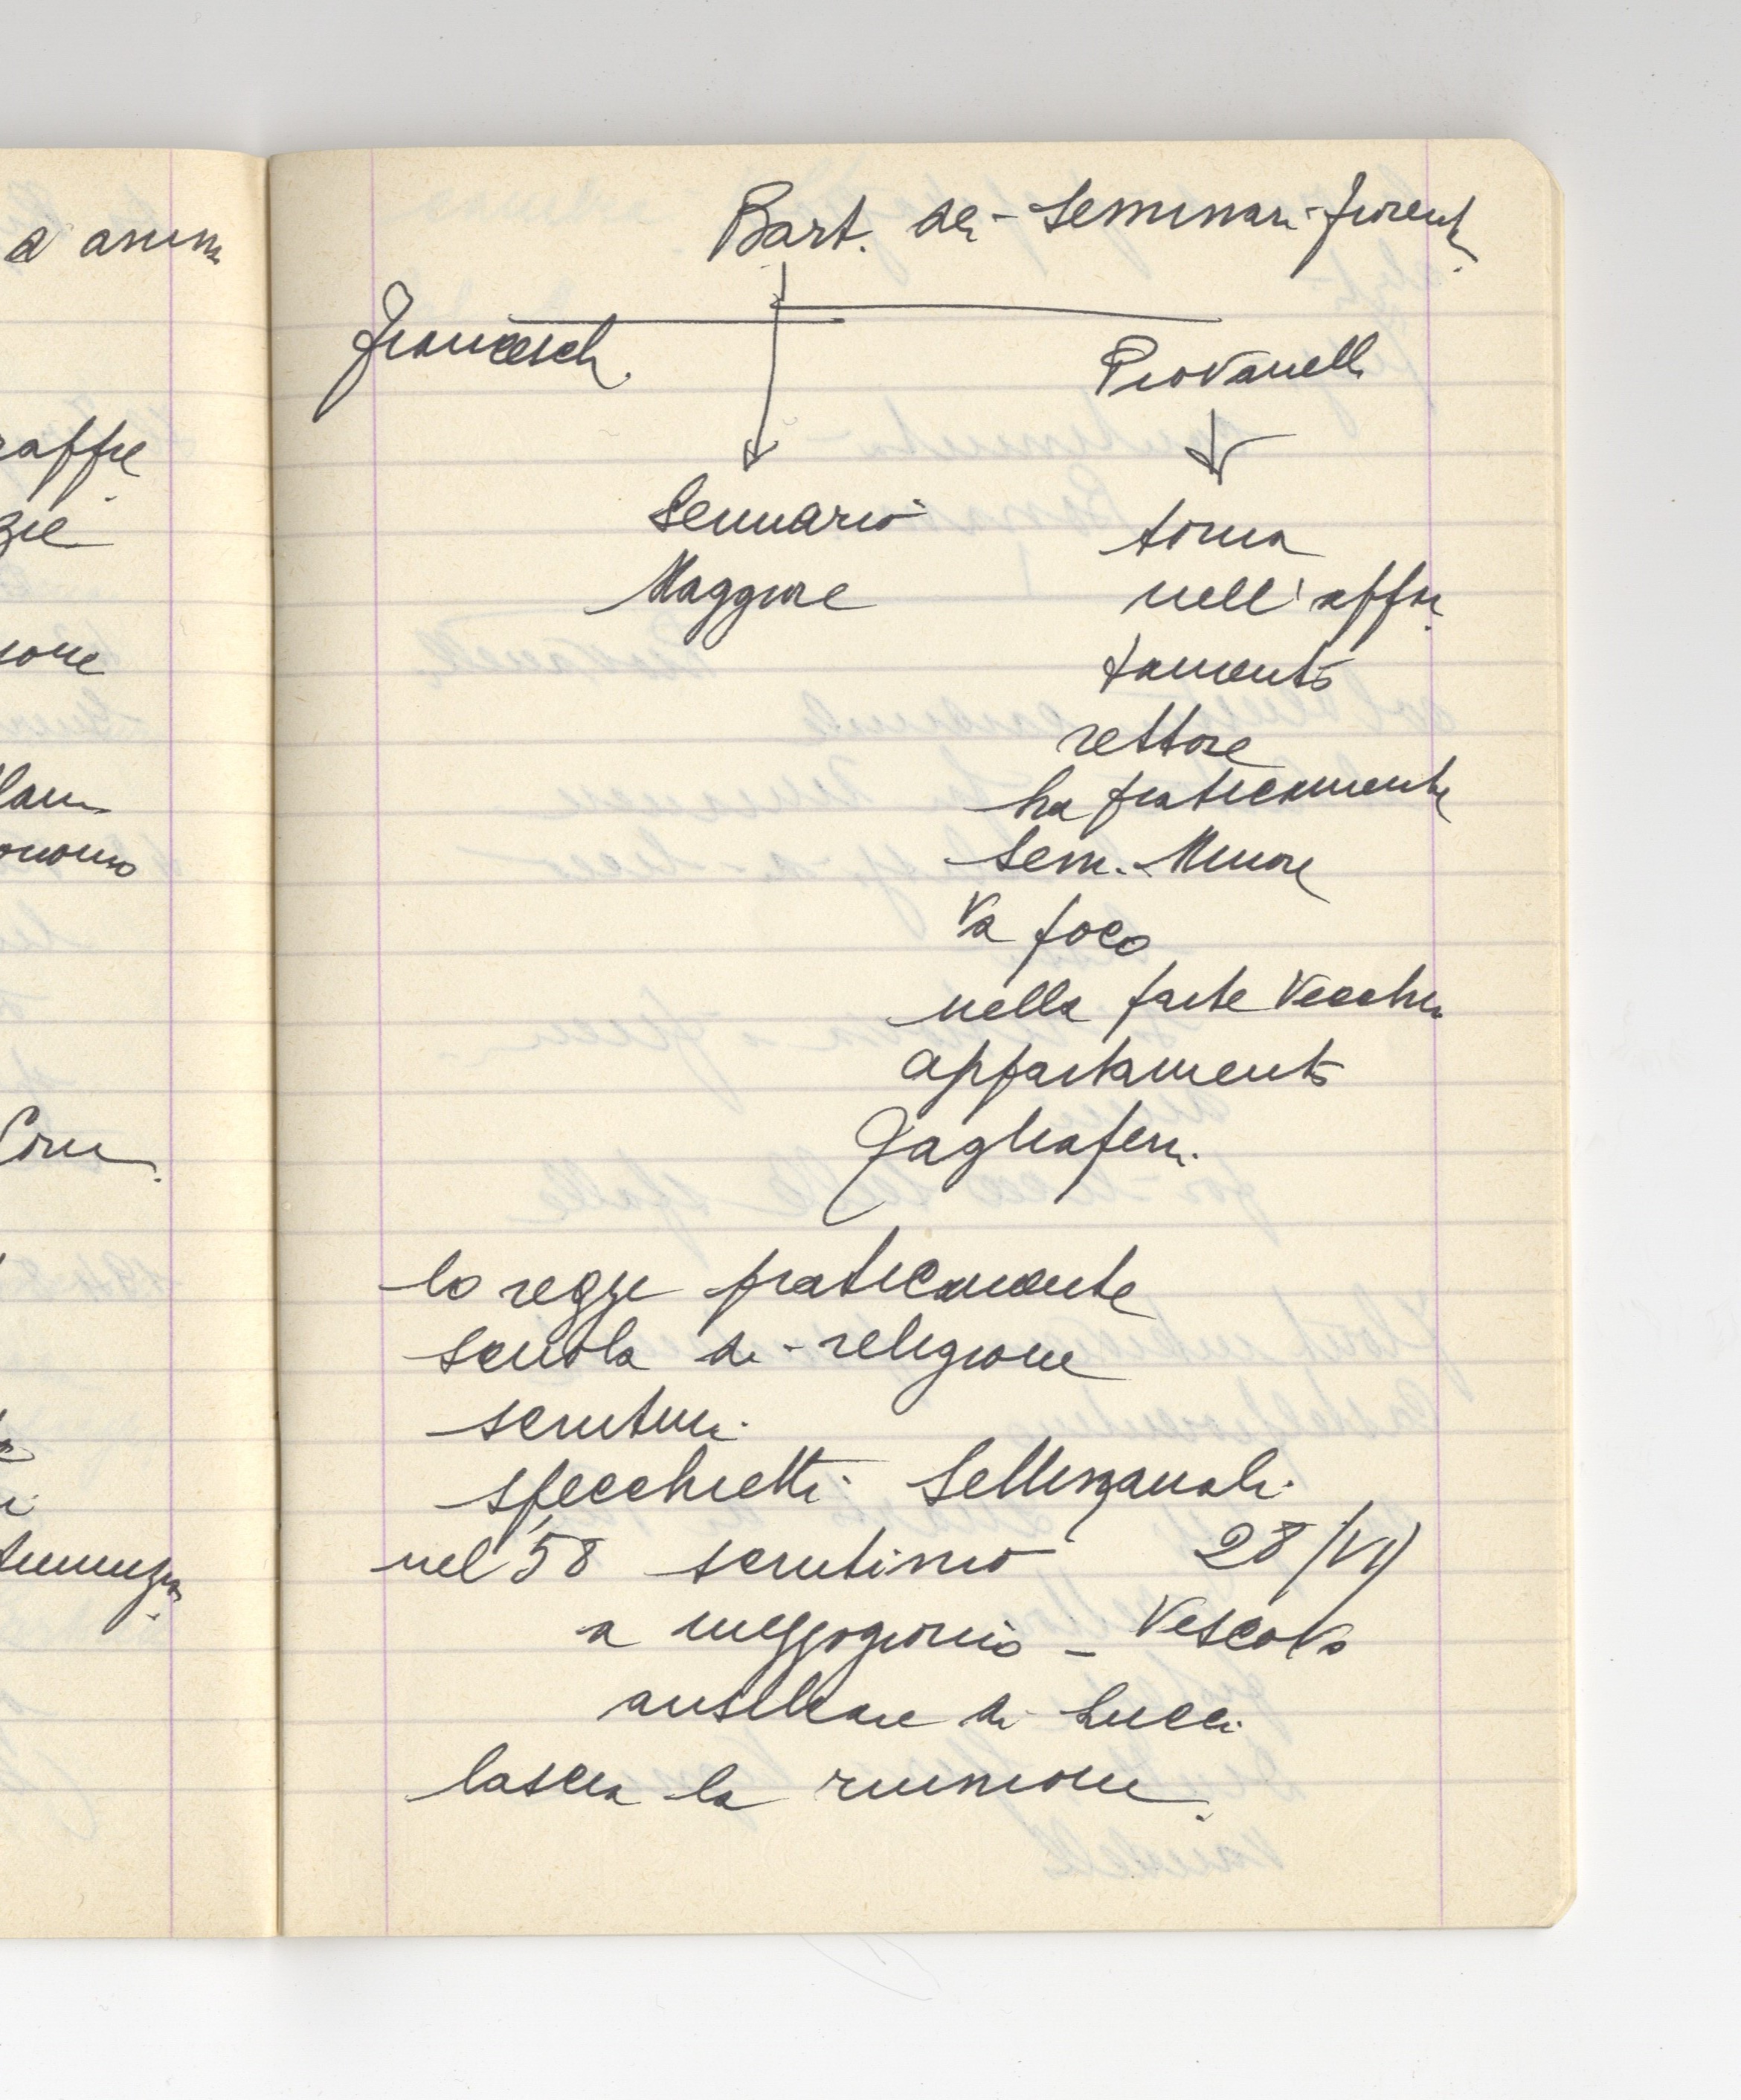 a anim
raffie
zie
ione
Com.
Bart. dei Seminari fiorent.
Franceschi
Piovanelli
Seminario
Maggiore
torna
nell'appar
tamento
rettore
ha praticamente
Sem. Minore
Va poco
nella parte vecchia
appartamento
Tagliaferri
lo regge praticamente
scuola di religione
scrutini
specchietti settimanali
nel '58 scrutinio 28/VI)
a mezzogiorno - Vescovo
ausiliare di Lucca
lascia la riunione.